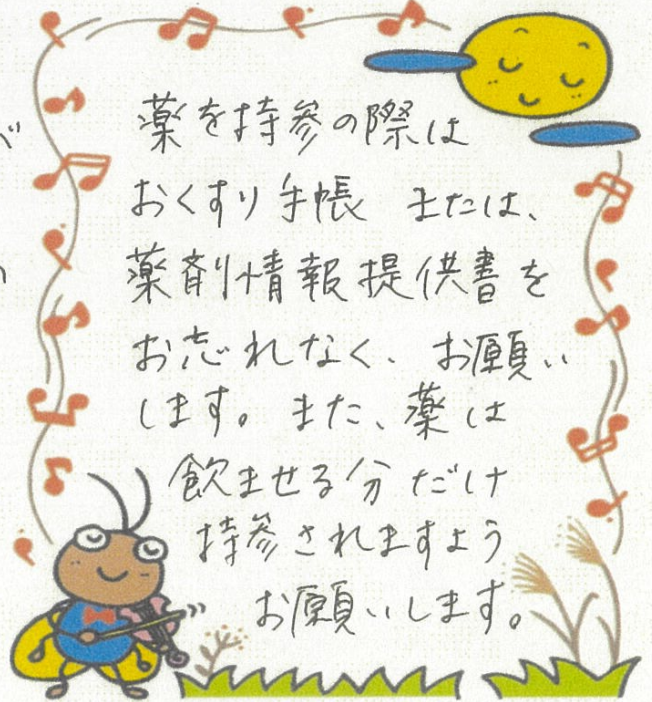 薬を持参の際は
おくすり手帳 または、
薬剤情報提供書を
お忘れなく、お願い
します。また、薬は
飲ませる分だけ
持参されますよう
お願いします。